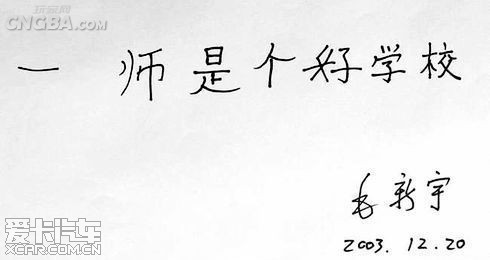 玩家网
CNGBA.com
一 师是个好学校
毛新宇
2003.12.20
爱卡汽车
XCAR.COM.CN